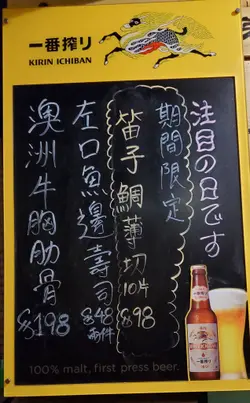 一番搾り
KIRIN ICHIBAN
注目の日です
期間限定
笛子鯛薄切10片$98
左口魚邊壽司$48兩件
澳洲牛胸肋骨$198
100% malt, first press beer.
一番搾り